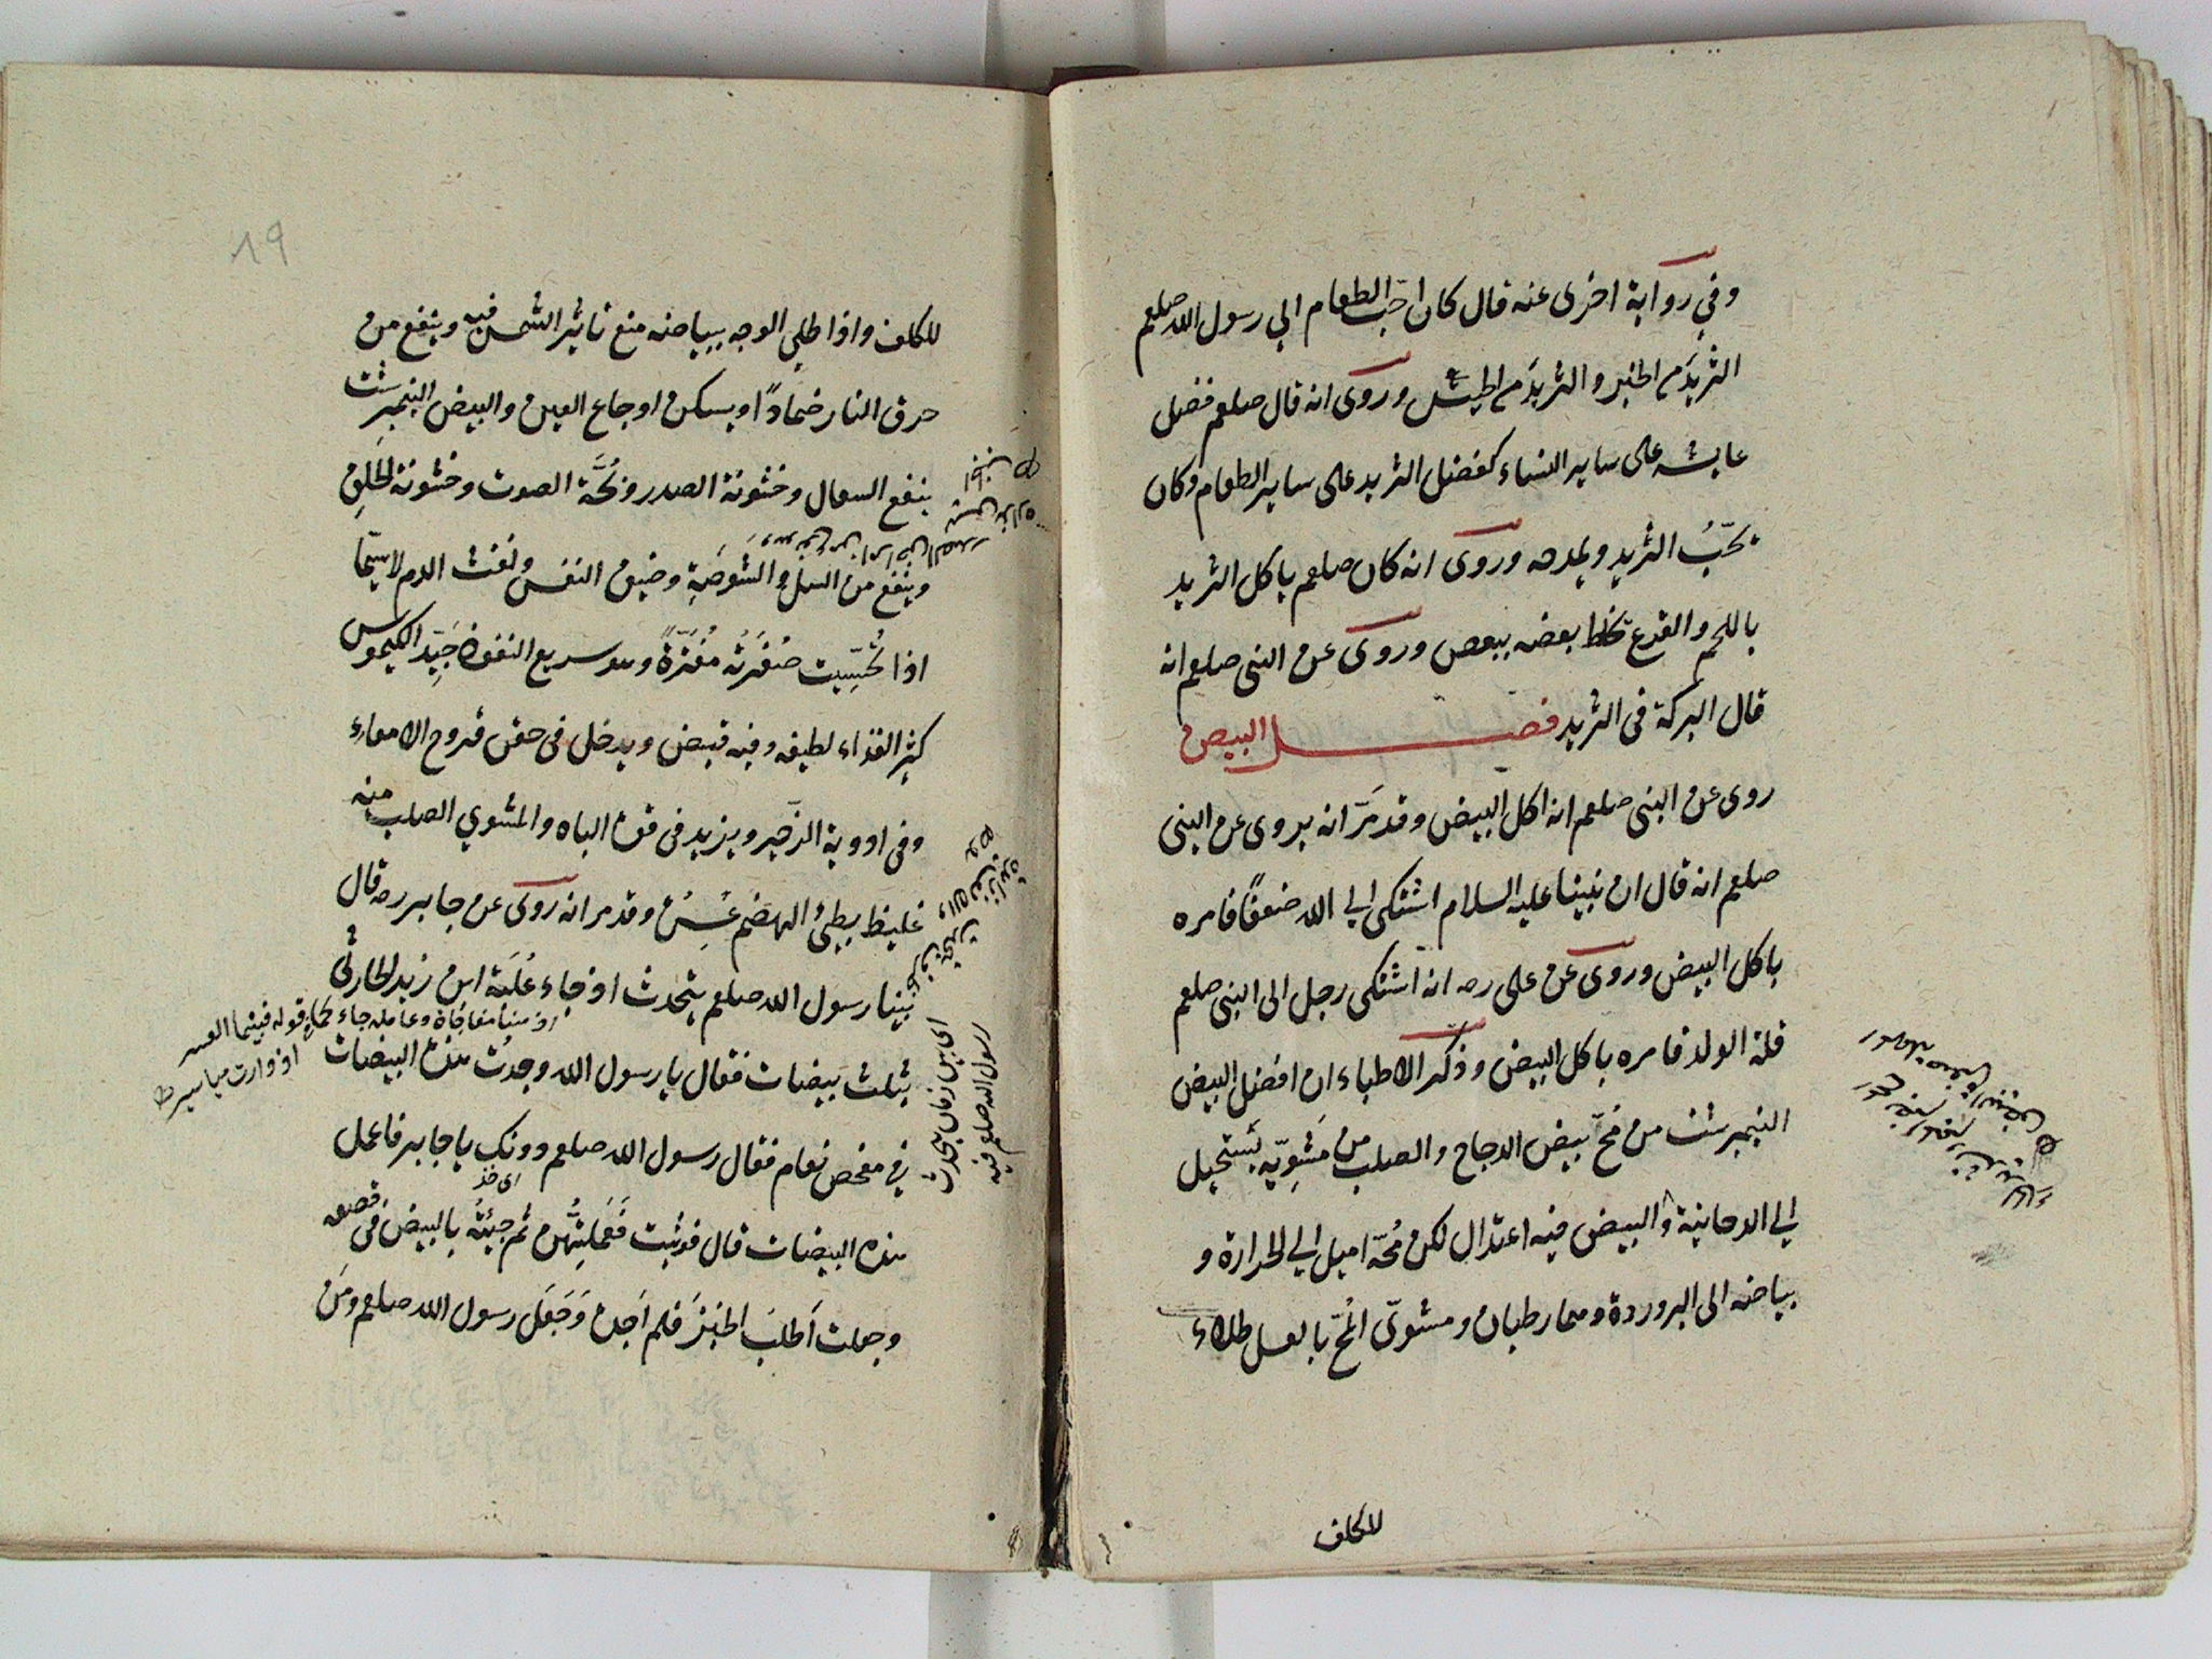 وفي رواية اخرى عنه قال كان احب الطعام الي رسول الله صلعم
الثريد من الخبز والثريد من الحيش وروى انه قال صلعم فضل
عايشه على ساير النساء كفضل الثريد على ساير الطعام وكان
يحبّ الثريد ويمدحه وروى انه كان صلعم ياكل الثريد
باللحم والقرع بعضه ببعض وروى عن النبى صلعم انه
قال البركة فى الثريد فصل البيض
روى عن النبى صلعم انه اكل البيض وقد مرّ انه يروى عن النبى
صلعم انه قال ان نبينا عليه السلام اشتكى الي الله ضعفًا فامره
باكل البيض وروى عن على رضه انه اشتكى رجل الى النبى صلعم
قلة الولد فامره باكل البيض وذكر الاطباء ان افضل البيض
النيمبرشت من مُحّ بيض الدجاج والصلب من مشويّه يستحيل
الي الدخانية والبيض فيه اعتدال لكن مُحّه اميل الي الحرارة و
بياضه الى البروردة وهما رطبان ومشوىّ المُحّ بالعسل طلاء
للكلف
19
للكلف واذا طلي الوجه ببياضه منع تاثير الشمس فيه وينفع من
حرق النار ضمادًا ويسكن اوجاع العين والبيض النيمبرشت
ينفع السعال وخشونة الصدر وبُحَّة الصوت وخشونة الحلق
وينفع من السل والشوصة وضيق النفس ونفث الدم لاسيّما
اذا تُحسِّيت صُفرَتُه مُفَتَّرةً وهو سريع النفوذ جَيِّد الكيموس
كثير الغذاء لطيفه وفيه قبض ويدخل فى حقن قروح الامعاء
وفى ادوية الزّحير ويزيد فى قوة الباه والمشوي الصلب منه
غليظ بطيئ الهضم عَسِرُه وقد مر انه روى عن جابر رضه قال
بينا رسول الله صلعم يتحدث اذ جاء عُلبَة ابن زيد الحارثى
بثلث بيضات فقال يا رسول الله وجدت هذه البيضات
في مفحص نعام فقال رسول الله صلعم دونك يا جابر فاعمل
اى خذ
هذه البيضات قال فوثبت فَعَملتُهن ثم جِئتُه بالبيض فى قصعه
وجعلت اَطلبَ الخبزَ فلم اَجده وَجَعَل رسول الله صلعم ومَن
اى بين زمان يتحدث
رسول الله صلعم فيه